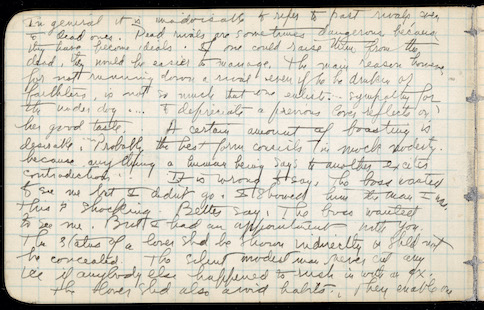 In general it is inadvisable to refer to past rivals, even
to dead ones. Dead rivals are sometimes dangerous because
they have become ideals. If one could raise them from the
dead, they would be easier to manage. The main reason however
for not running down a rival even if he be drunken or
faithless, is not so much that one enlists sympathy for
the under dog ... to depreciate a previous lover reflects on
her good taste. A certain amount of boasting is
desirable. Probably the best form consists in mock modesty.
because anything a human being says to another excites
contradiction... It is wrong to say, The boss wanted
to see me but I didn't go. I showed him the man I am,
This is shocking. Better say, The boss wanted
to see me. But I had an appointment with you.
The status of a lover shd be shown indirectly, & shld not
be concealed. The silent modest man never cut any
ice if anybody else happened to rush in with an ox.
The lover shld also avoid habits. They enable one